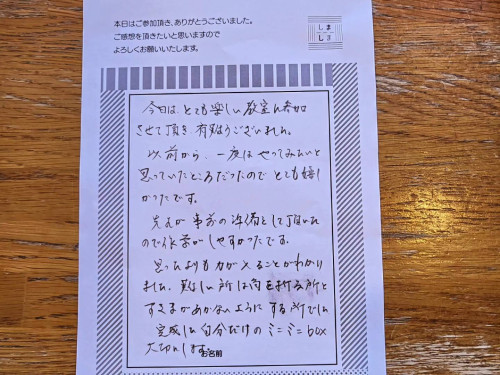 本日はご参加頂き、ありがとうございました。
ご感想を頂きたいと思いますので
よろしくお願いいたします。
しま
しま
今日は、とても楽しい教室に参加
させて頂き、有難うございました。
以前から、一度はやってみたいと
思っていたところだったので とても嬉し
かったです。
先生が 事前の準備をして頂いた
ので作業がしやすかったです。
思ったよりも力が入ることがわかり
ました。難しい所は角を折る所と
すきまがあかないように する所でした
完成した自分だけの ミニミニbox
大切にします。
お名前